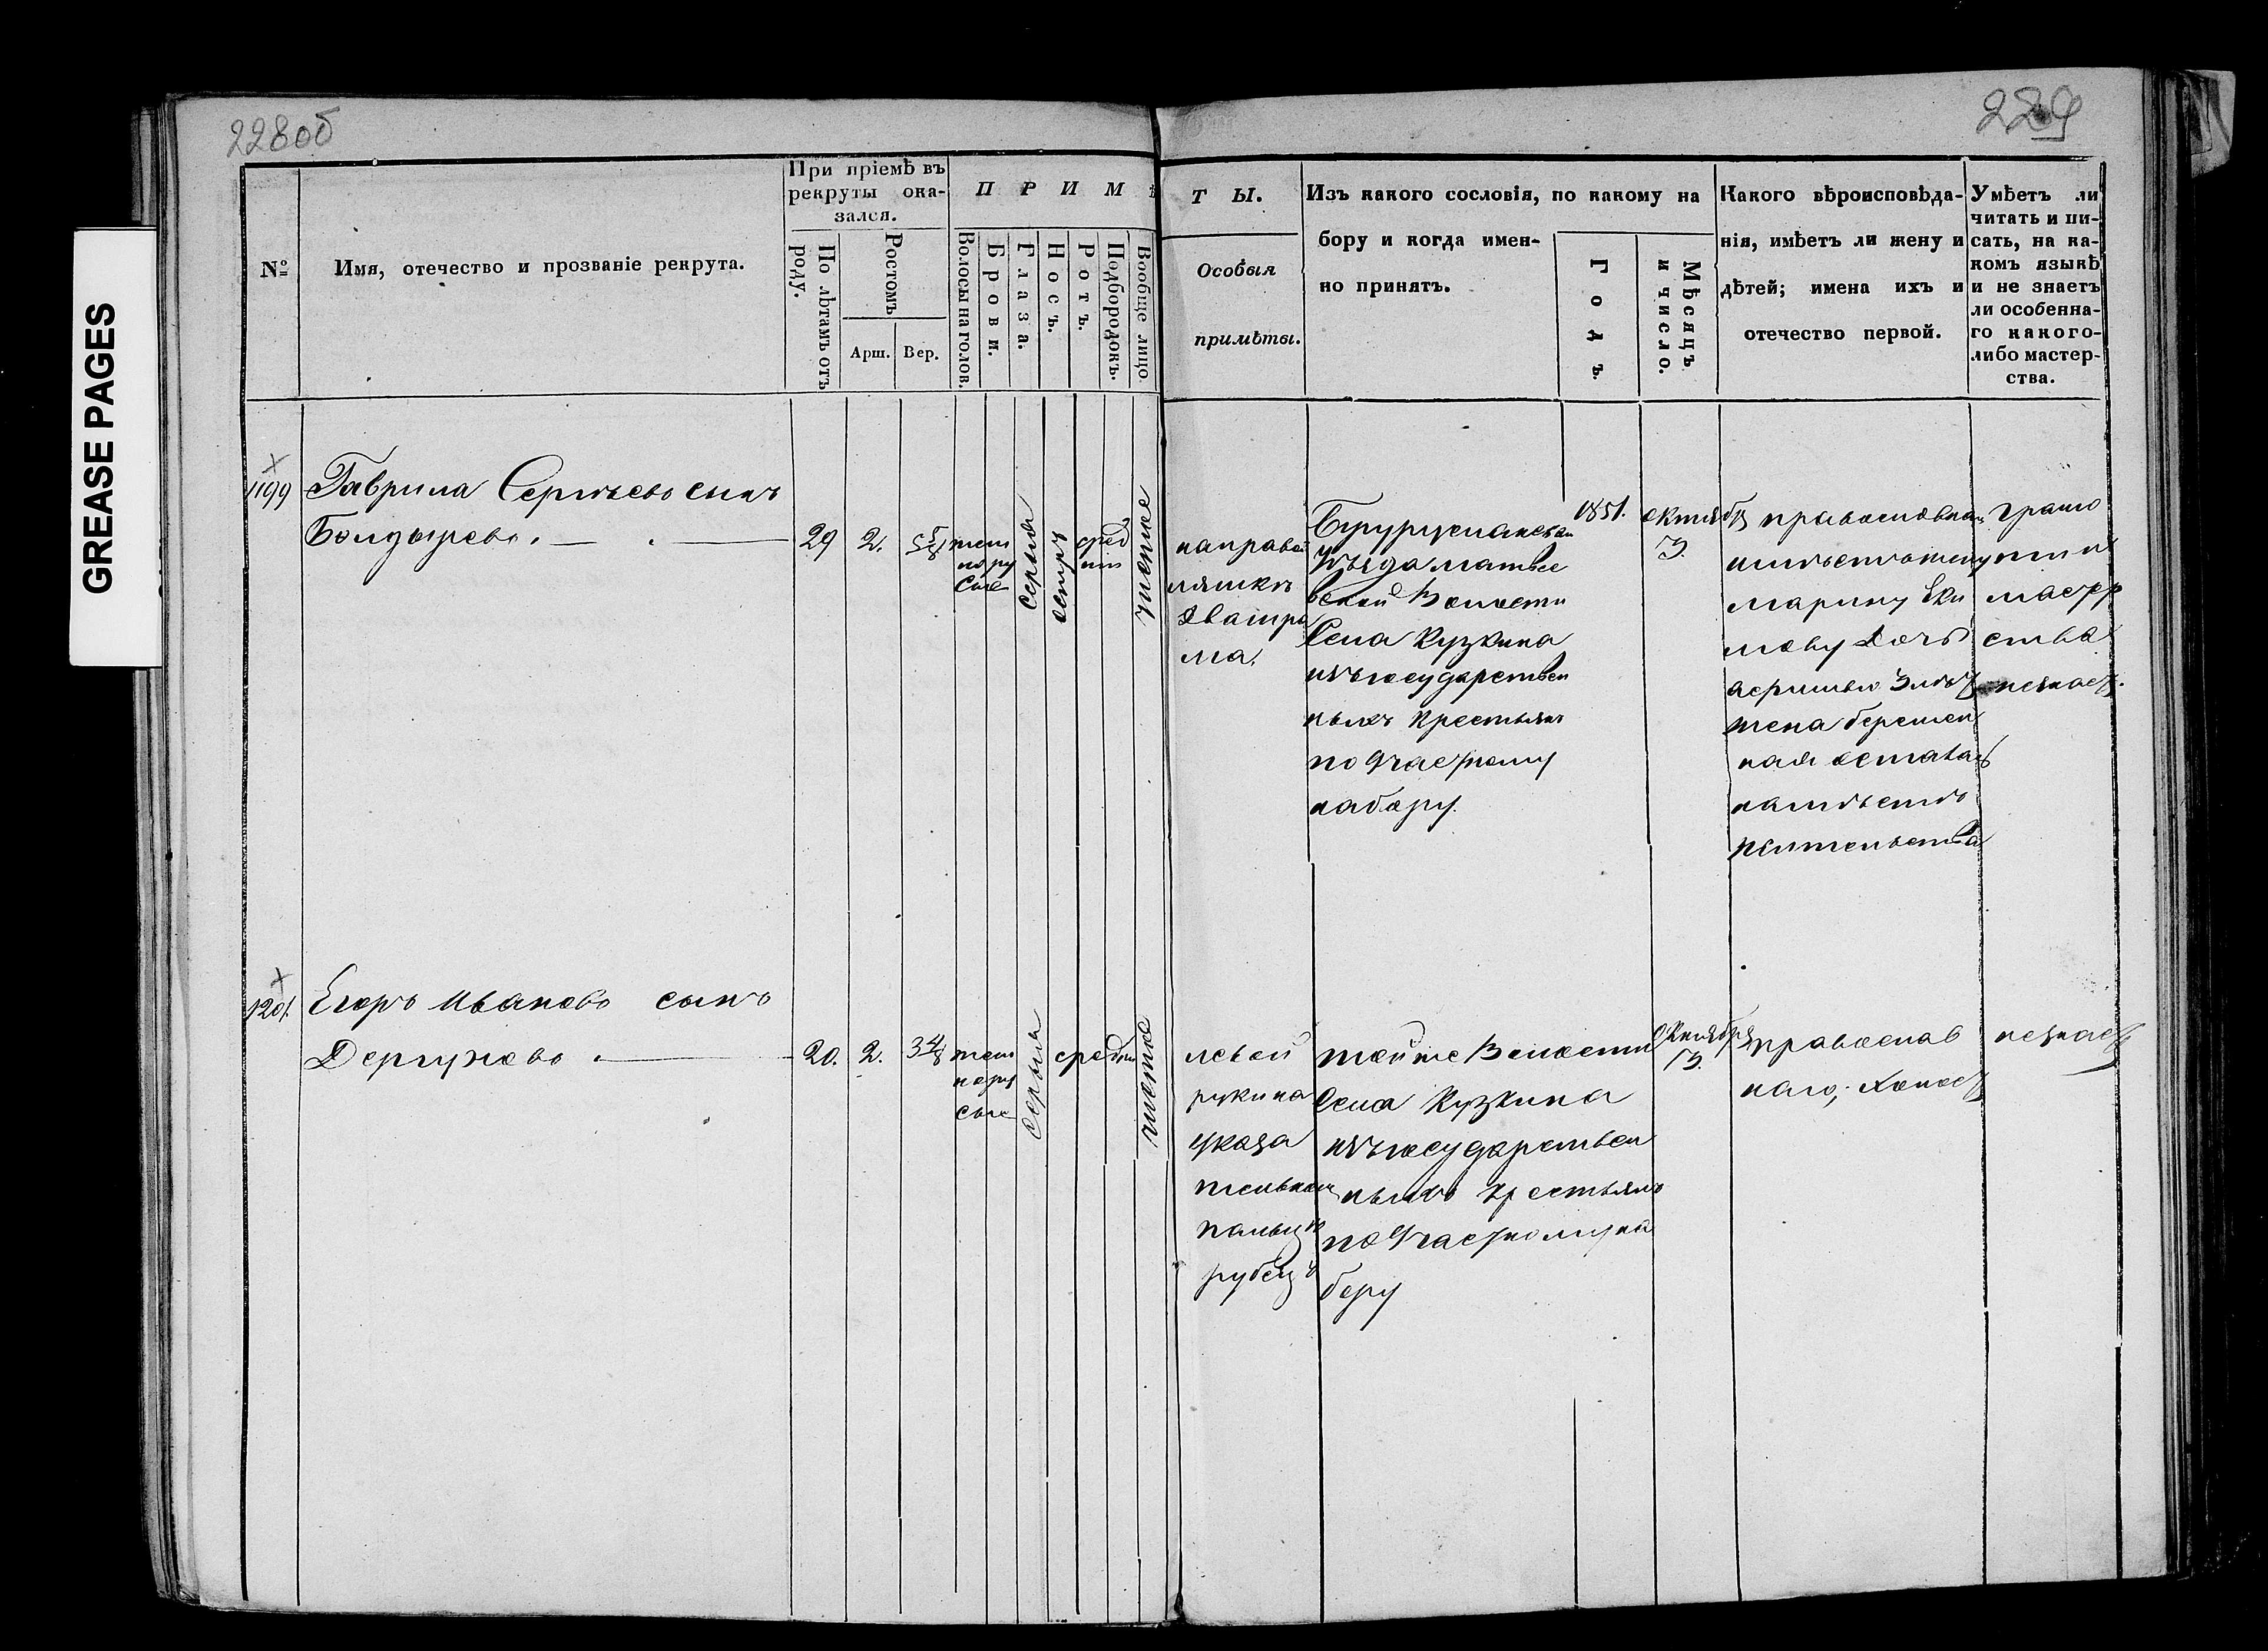 GREASE PAGES
228об
229
№
Имя, отечество и прозваніе рекрута.
При пріемѣ въ
рекруты ока-
зался.
По лѣтамъ отъ
роду.
Ростомъ
Арш.
Вер.
П Р И М Ѣ
Волосы на голов.
Брови.
Глаза.
Носъ.
Ротъ.
Подбородокъ.
Вообще лицо.
Т Ы.
Особыя
примѣты.
Изъ какого сословія, по какому на
бору и когда имен-
но принятъ.
Годъ.
Мѣсяцъ
и число.
Какого вѣроисповѣда-
нія, имѣетъ ли жену и
дѣтей; имена ихъ и
отечество первой.
Умѣетъ ли
читать и пи-
сать, на ка-
комъ языкѣ
и не знаетъ
ли особенна-
го какого-
либо мастер-
ства.
1199
Гаврила Сергѣевъ сынъ
Болдыревъ.
29
2.
5 5/8
тем
нору
сые
серыя
остръ
сред
ній
чистое
направой
ляшкѣ
два шра
ма.
Бугурусланскаго
Уѣзда Матвее
вской Волости
Села Кузкина
изъ государствен
ныхъ крестьянъ
по Частному
набору.
1851.
октября
3.
православнаго
имѣетъ жену
Марину Еки
мову дочь
жена беремен
ная осталась
намѣстѣ
жительства
грамо
ти и
мастер
ства
незнаетъ.
1201.
Егоръ Ивановъ сынъ
Дергуновъ
20.
2.
3 4/8
тем
нору
сые
серыя
средній
чистое
левой
руки на
указа
тельномъ
пальцѣ
рубецъ
тойже Волости
Села Кузкина
изъ государствен
ныхъ крестьянъ
по Частному на
бору
Октября
3.
православ
наго, холостъ
незнаетъ